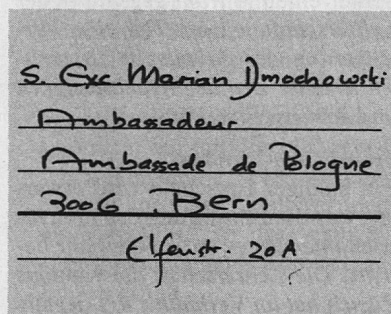 S. Exc. Marian Dmochowski
Ambassadeur
Ambassade de Pologne
3006 Bern
Elfenstr. 20A